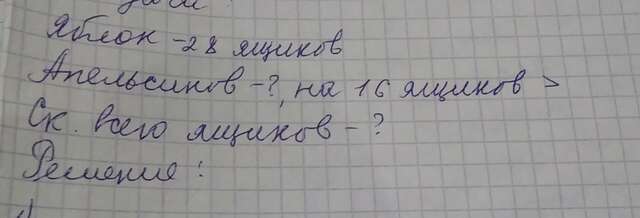 Яблок - 28 ящиков
Апельсинов - ?, на 16 ящиков >
Ск. всего ящиков - ?
Решение: